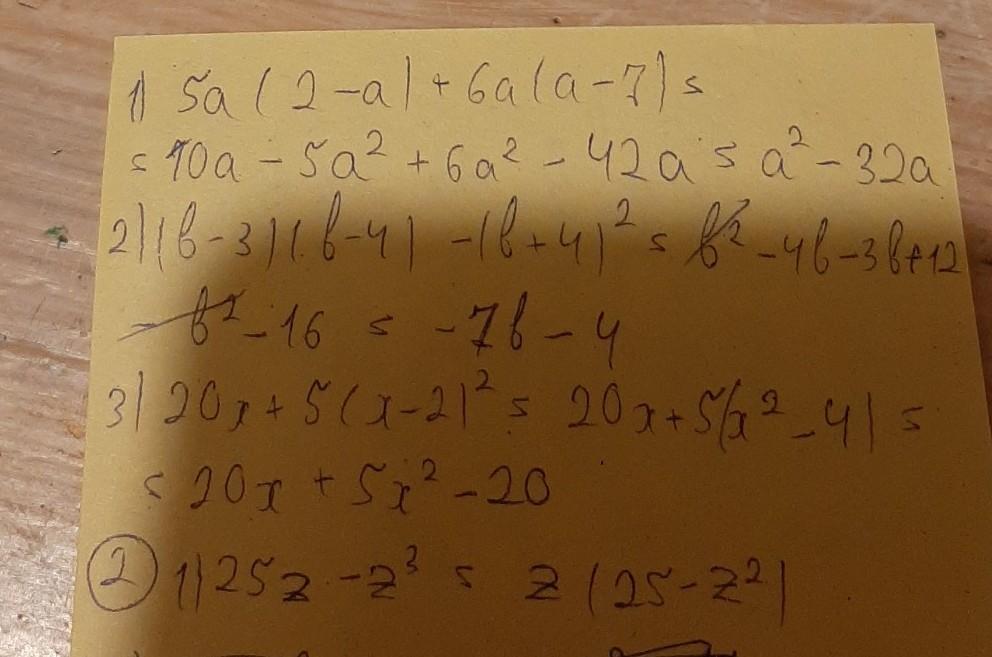 1) 5a(2-a)+6a(a-7)=
=10a-5a²+6a²-42a=a²-32a
2)(b-3)(b-4)-(b+4)²=b²-4b-3b+12
-b²-16=-7b-4
3)20x+5(x-2)²=20x+5(x²-4)=
=20x+5x²-20
2 1)25z-z³=z(25-z²)